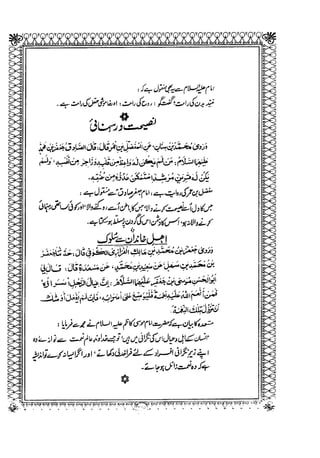 امام علیہ السلام سے یہ بھی منقول ہے کہ :
نیند بدن کی راحت ؛ گفتگو ؛ روح کی راحت ؛ اور خاموشی عقل کی راحت ہے ۔
نصیحت و رہنمائی
وَرَوىٰ مُحَمَّدُ بْنُ سِنَانٍ، عَنِ الْمُفَضَّلِ بْنِ عُمَرَ قَالَ، قَالَ الصَّادِقُ جَعْفَرُ بْنُ مُحَمَّدٍ
عَلَيْهِمَا السَّلَامُ، مَنْ لَمْ يَكُنْ لَهُ وَاعِظٌ مِنْ قَلْبِهِ وَزَاجِرٌ مِنْ نَفْسِهِ، وَلَمْ
يَكُنْ لَهُ قَرِينٌ مُرْشِدٌ اسْتَمْكَنَ عَدُوُّهُ مِنْ عُنُقِهِ۔
مفضل بن عمر کی روایت ہے ، امام جعفر صادق سے منقول ہے ؛
جس کا دل اسے نصیحت کرنے والا، جس کا نفس اسے روکنے والا اور کوئی ساتھی رہنمائی
کرنے والا نہ ہو، اس کا دشمن اس کی گردن پر مسلط ہو سکتا ہے۔
اہل خاندان سے سلوک
وَرَوىٰ جَعْفَرُ بْنُ مُحَمَّدِ بْنِ مَالِكٍ الْفَزَارِيُّ الْكُوفِيُّ قَالَ، حَدَّثَنَا جَعْفَرُ
بْنُ مُحَمَّدِ بْنِ سَهْلٍ عَنْ سَعِيدِ بْنِ مُحَمَّدٍ، عَنْ مَسْعَدَةَ قَالَ، قَالَ لِي
أَبُو الْحَسَنِ مُوسَى بْنُ جَعْفَرٍ عَلَيْهِمَا السَّلَامُ، إِنَّ عِيَالَ الرَّجُلِ أُسَرَاؤُهُ
فَمَنْ أَنْعَمَ اللَّهُ عَلَيْهِ نِعْمَةً فَلْيُوَسِّعْ عَلَى أُسَرَائِهِ، فَإِنْ لَمْ يَفْعَلْ أَوْشَكَ
أَنْ تَزُولَ تِلْكَ النِّعْمَةُ۔
مسعدہ کا بیان ہے کہ حضرت امام موسی کاظم علیہ السلام نے مجھ سے فرمایا :
انسان کے اہل و عیال اس کی نگرانی میں ہیں تو جسے خداوند عالم نعمت سے نوازے وہ
اپنے زیر نگرانی افراد کے لئے فراخدلی دکھائے ، اور اگر ایسا نہ کرے تو اندیشہ
ہے کہ وہ نعمت زائل ہو جائے۔